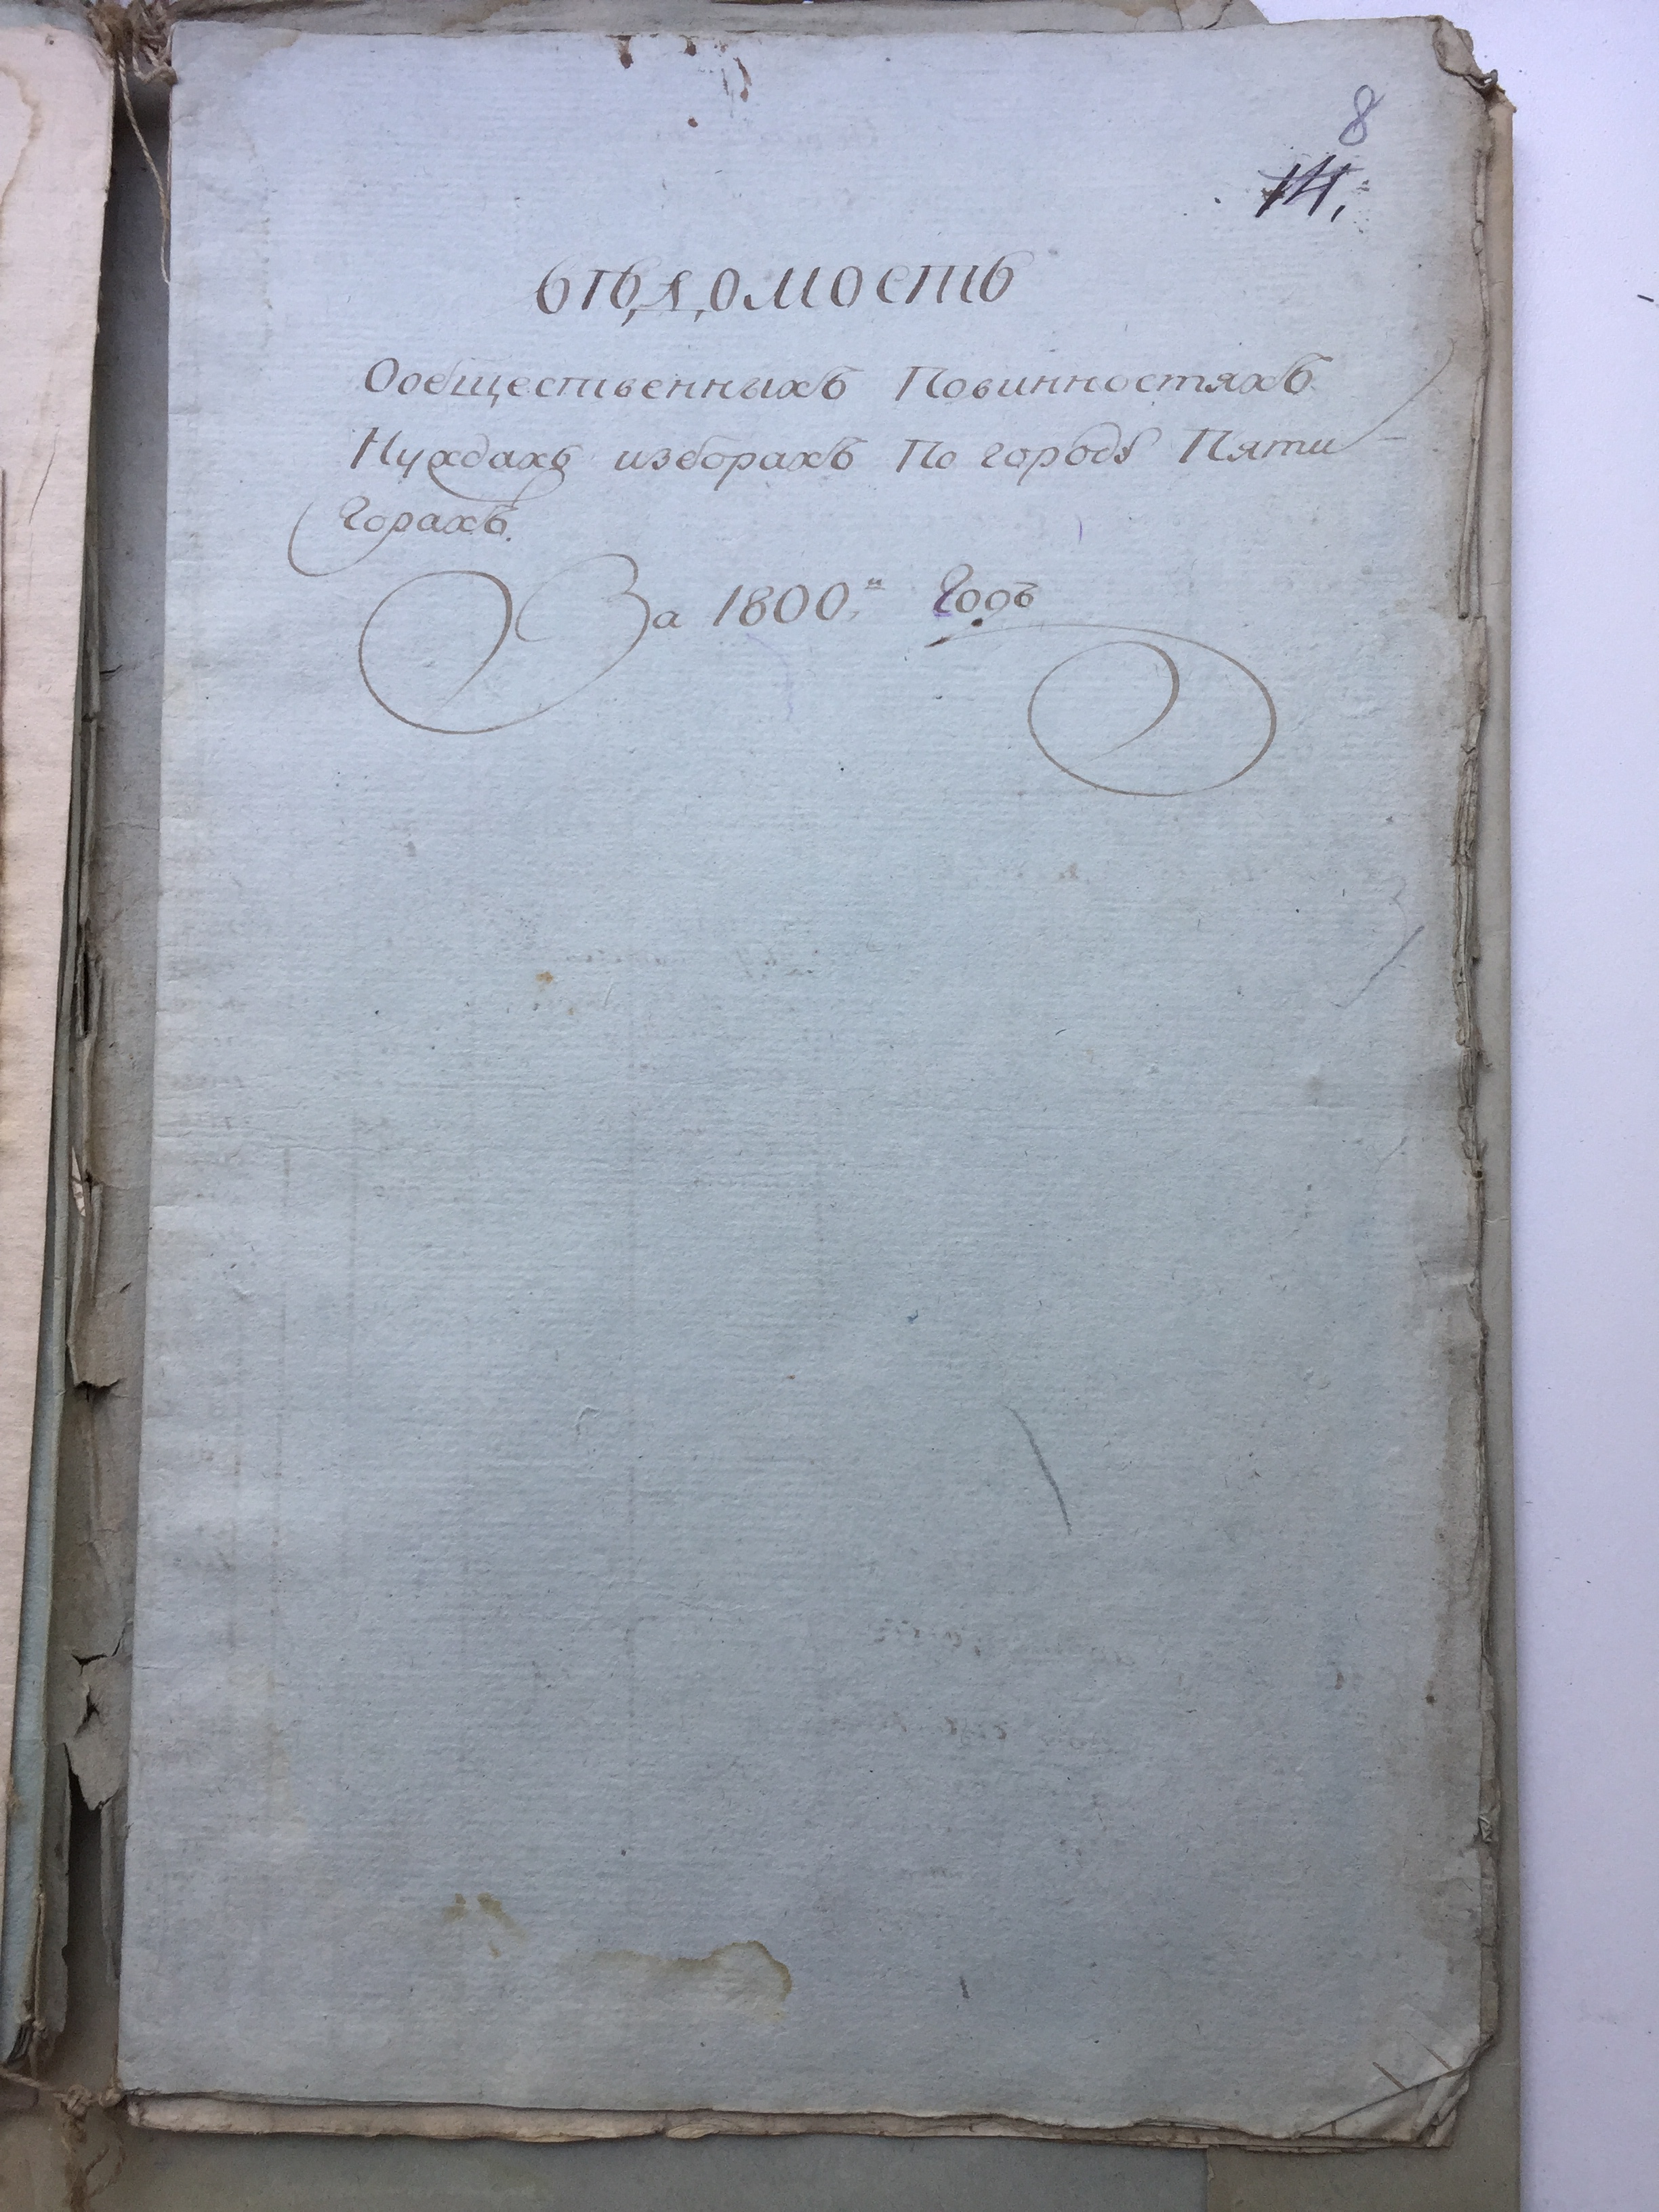 8
14.
вѣдомость
Ообщественныхъ Повинностяхъ
Нуждахъ изборахъ По городѣ Пяти
Горахъ.
За 1800.й Годъ